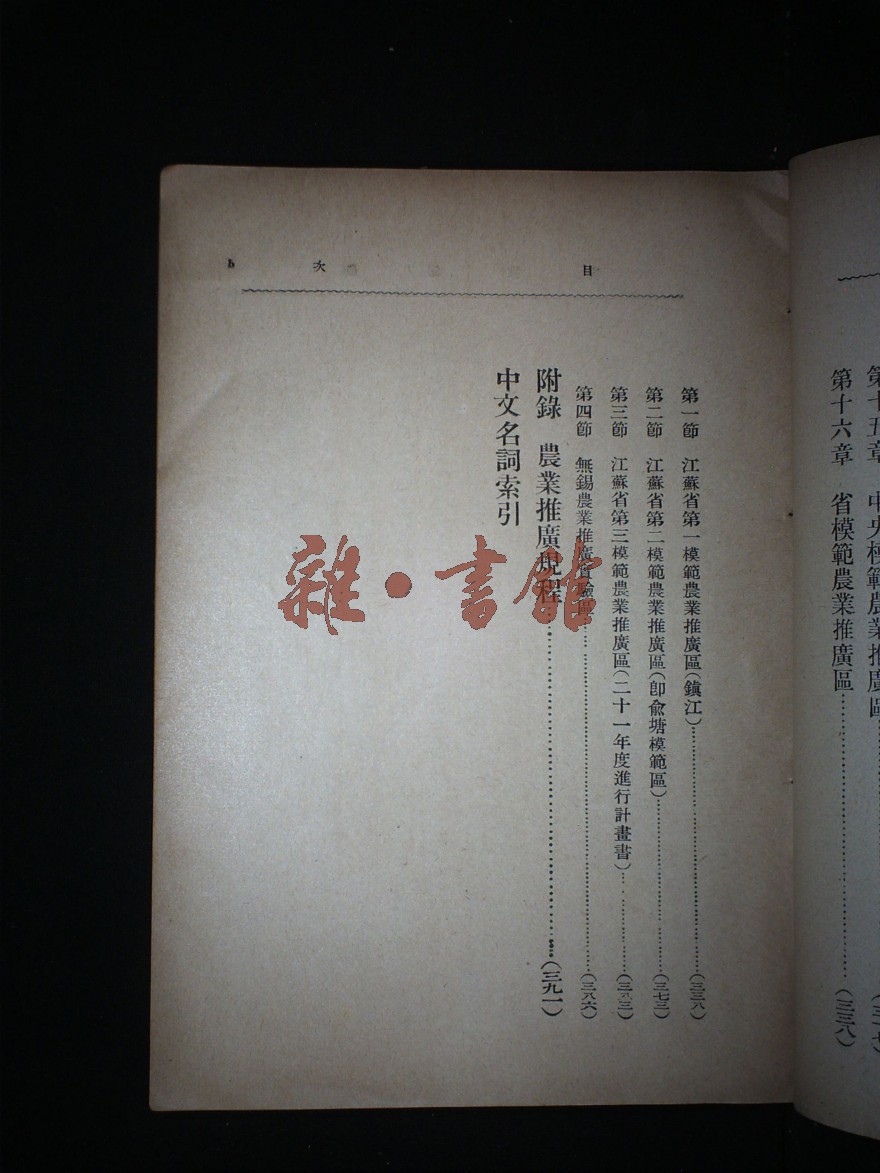 第十五章 中央模範農業推廣區
第十六章 省模範農業推廣區……(三三八)
目 次
第一節 江蘇省第一模範農業推廣區(鎮江)……(三三八)
第二節 江蘇省第二模範農業推廣區(卽俞塘模範區)……(三七三)
第三節 江蘇省第三模範農業推廣區(二十一年度進行計畫書)……(三八三)
第四節 無錫農業推廣實驗區……(三八六)
附錄 農業推廣規程……(三九一)
中文名詞索引
雜·書館